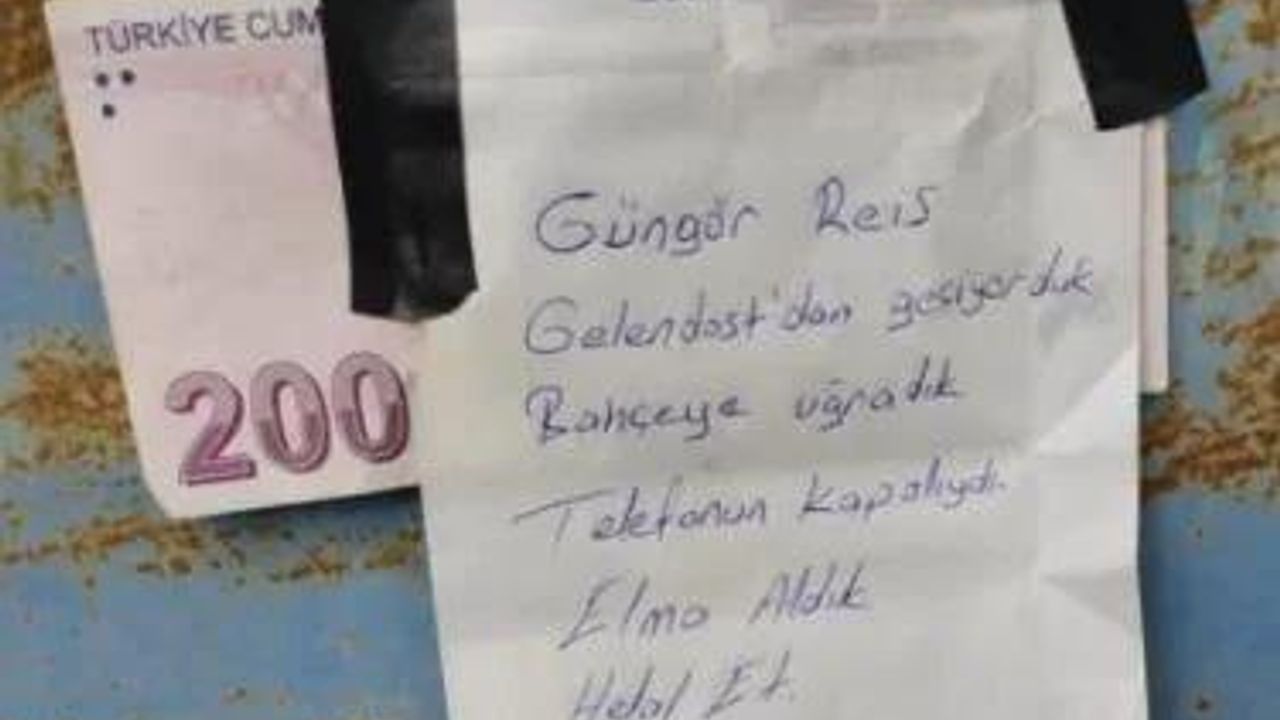 TÜRKİYE CUM
200
Güngör Reis
Gelendost'dan geçiyorduk
Bahçeye uğradık
Telefonun kapalıydı.
Elma Aldık
Helal Et.